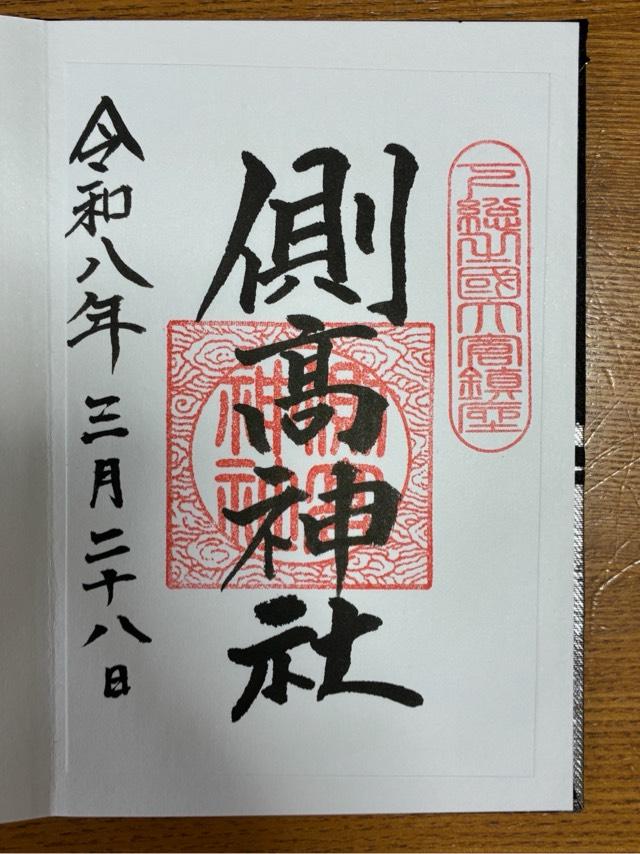 下総國大倉鎮座
側高神社
側高神社
令和八年三月二十八日